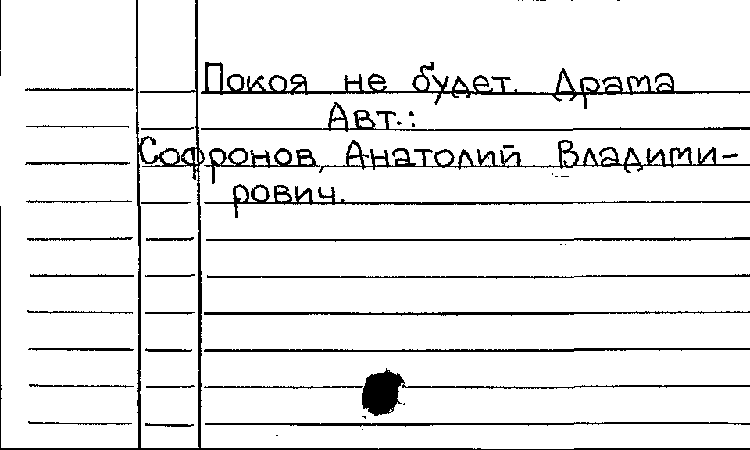 Покоя не будет. Драма
Авт.:
Софронов, Анатолий Владими-
рович.